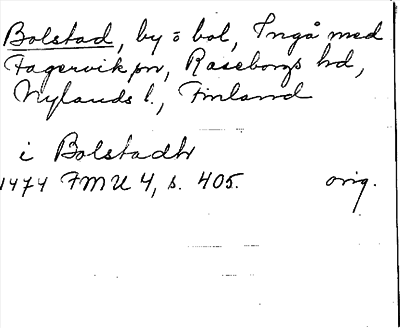 Bolstad, by o bol, Ingå med
Fagervik pn, Raseborgs hd,
Nylands l., Finland
i Bolstadh
1474 FMU 4, s. 405. orig.